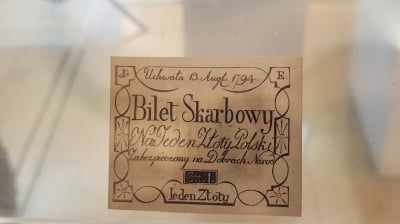 J. Uchwała 13 Augt 1794. E.
Bilet Skarbowy
Na Jeden Złoty Polski
Zabezpieczony na Dobrach Narod
Jeden Złoty